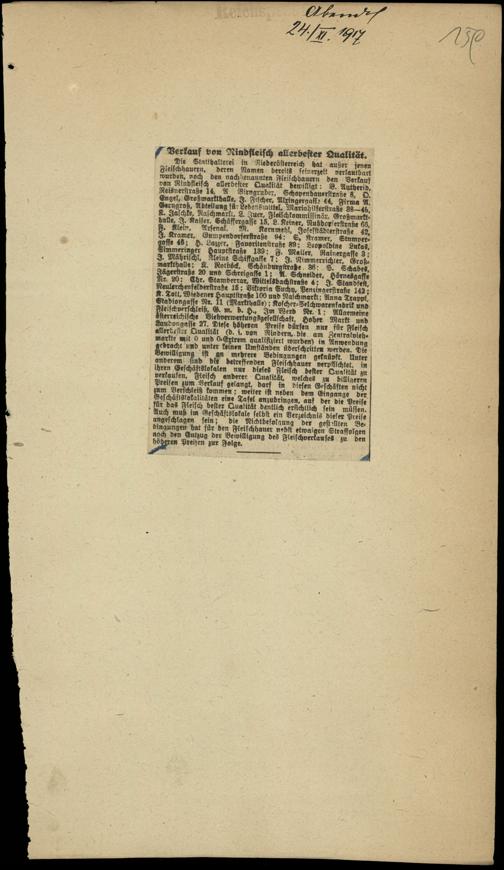 Abendbl
24./XI. 1917
Verkauf von Rindfleisch allerbester Qualität.
Die Statthalterei in Niederösterreich hat außer jenen
Fleischhauern, deren Namen bereits seinerzeit verlautbart
wurden, noch den nachbenannten Fleischhauern den Verkauf
von Rindfleisch allerbester Qualität bewilligt:
Reisnerstraße 14, A. Birngruber, Schopenhauerstraße 8, O.
Engel, Großmarkthalle, J. Fischer, Alxingergasse 44, Firma A.
Gerngroß, Abteilung für Lebensmittel, Mariahilferstraße 38—45,
K. Jaschke, Naschmarkt, L. Juer, Fleischkommissionär, Großmarkt-
halle, J. Kaiser, Schäffergasse 15, L. Keiner, Nußdorferstraße 66,
F. Klein, Arsenal, M. Kornmehl, Josefstädterstraße 42,
J. Kramer, Gumpendorferstraße 94; S. Kramer, Stumper-
gasse 46; H. Lazzer, Favoritenstraße 89; Leopoldine Lukas,
Simmeringer Hauptstraße 139; F. Maller, Rainergasse 3;
J. Mährischl, Kleine Schiffgasse 7; J. Nimmerrichter, Groß-
markthalle; K. Rotböck, Schönburgstraße 36; S. Schabes,
Jägerstraße 20 und Schreigasse 1; A. Schneider, Hörnesgasse
Nr. 20; Chr. Stambertar, Wittelsbachstraße 4; J. Standfest,
Neulerchenfelderstraße 15; Viktoria Suchy, Penzingerstraße 142;
K. Toll, Wiedener Hauptstraße 100 und Naschmarkt; Anna Trappl,
Stadiongasse Nr. 11 (Markthalle); Koscher-Selchwarenfabrik und
Fleischverschleiß, G. m. b. H., Im Werd Nr. 1; Allgemeine
österreichische Viehverwertungsgesellschaft, Hoher Markt und
Landongasse 27. Diese höheren Preise dürfen nur für Fleisch
allerbester Qualität (d. i. von Rindern, die am Zentralvieh-
markte mit 0 und 0-Extrem qualifiziert wurden) in Anwendung
gebracht und unter keinen Umständen überschritten werden. Die
Bewilligung ist an mehrere Bedingungen geknüpft. Unter
anderem sind die betreffenden Fleischhauer verpflichtet, in
ihren Geschäftslokalen nur dieses Fleisch bester Qualität zu
verkaufen. Fleisch anderer Qualität, welches zu billigeren
Preisen zum Verkauf gelangt, darf in diesen Geschäften nicht
zum Verschleiß kommen; weiter ist neben dem Eingange der
Geschäftslokalitäten eine Tafel anzubringen, auf der die Preise
für das Fleisch bester Qualität deutlich ersichtlich sein müssen.
Auch muß im Geschäftslokale selbst ein Verzeichnis dieser Preise
angeschlagen sein; die Nichtbefolgung der gestellten Be-
dingungen hat für den Fleischhauer nebst etwaigen Straffolgen
noch den Entzug der Bewilligung des Fleischverkaufes zu den
höheren Preisen zur Folge.